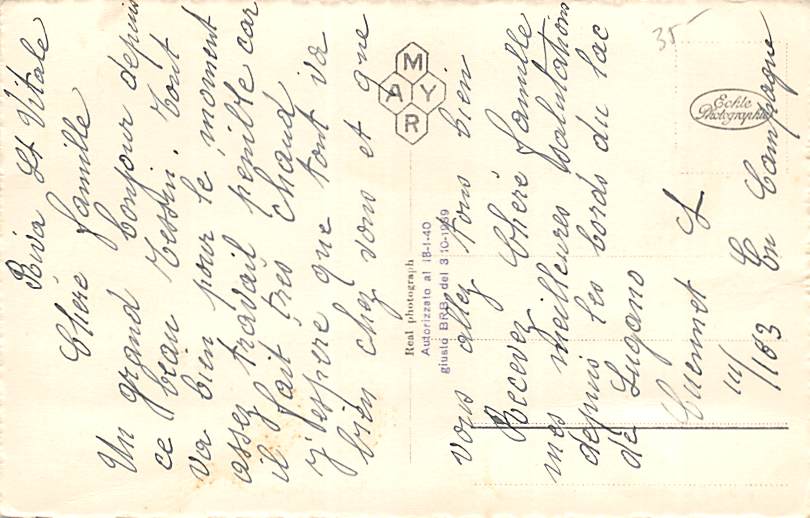 Riva St Vitale
Chère famille
Un grand bonjour depuis
ce beau Tessin. Tout
va bien pour le moment
assez travail penible car
il fait très chaud
J'espère que tout va
bien chez vous et que
vous allez tous bien
Recevez Chère famille
mes meilleures salutations
depuis les bords du lac
de Lugano
Cuennet
III/103
En Campagne
MAYR
Real photograph
Autorizzato al 18-1-40
giusto BRB. del 3 10-1939
Echte
Photographie
35